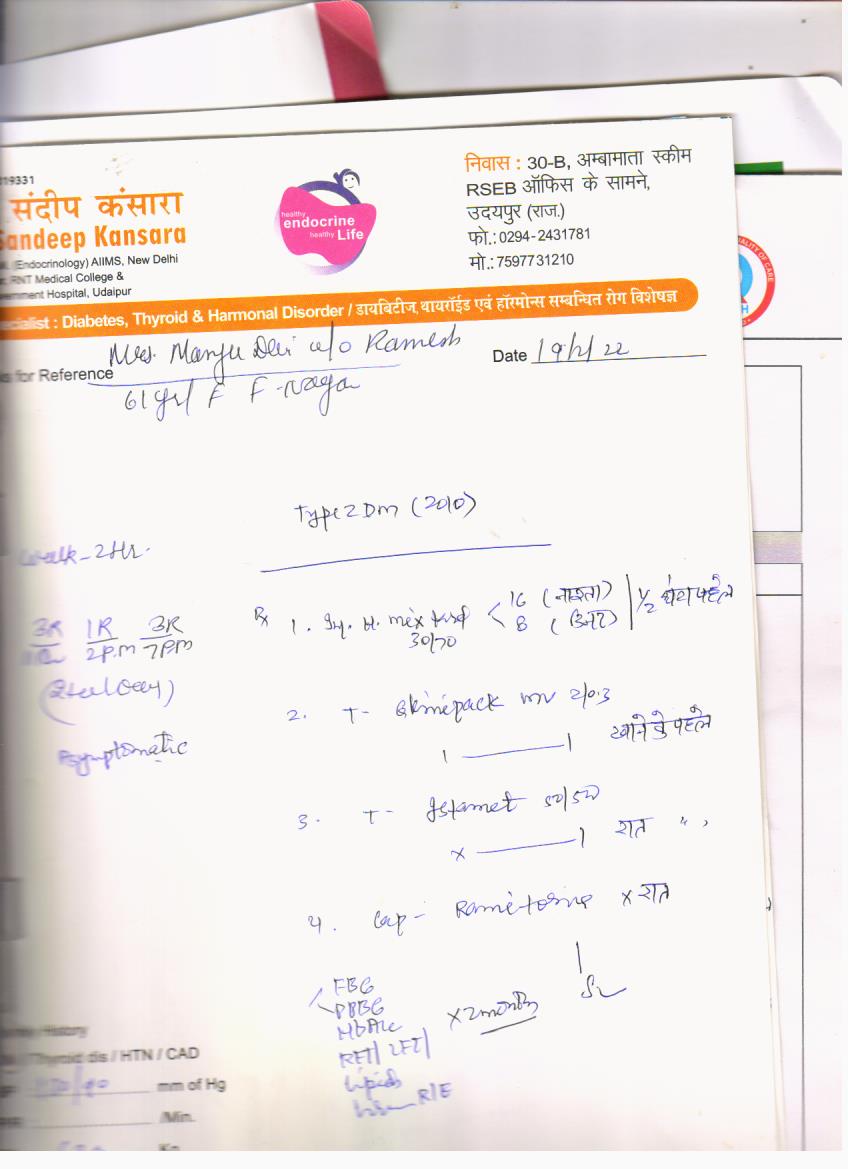 19331
संदीप कंसारा
Sandeep Kansara
(Endocrinology) AIIMS, New Delhi
RNT Medical College &
ernment Hospital, Udaipur
healthy
endocrine
healthy Life
निवास : 30-B, अम्बामाता स्कीम
RSEB ऑफिस के सामने,
उदयपुर (राज.)
फो.: 0294-2431781
मो.: 7597731210
ecialist : Diabetes, Thyroid & Harmonal Disorder / डायबिटीज, थायरॉईड एवं हॉरमोन्स सम्बन्धित रोग विशेषज्ञ
s for Reference Mrs. Manju Devi w/o Ramesh
Date 19/2/22
61 yr/ F F-Naga
Type 2 Dm (2010)
Walk - 2Hr.
3R 1R 3R
2P.M 7PM
Asymptomatic
Rx 1. Inj. H. mixtard 30/70 < 16 (नाश्ता) 8 (डिनर) | 1/2 घंटा पहले
2. T- mv 2/0.3
1 — 1 खाने के पहले
3. T- Istamet 50/500
x — 1 रात " ,
4. Cap - x रात
1
FBG
PPBG
HbA1c
RFT/ LFT/
Lipids
R/E
x 2 months
History
Thyroid dis / HTN / CAD
mm of Hg
/Min.
Kg